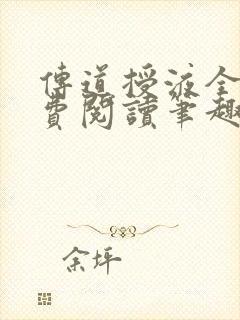 傳道授液全
費閱讀筆趣
余坪